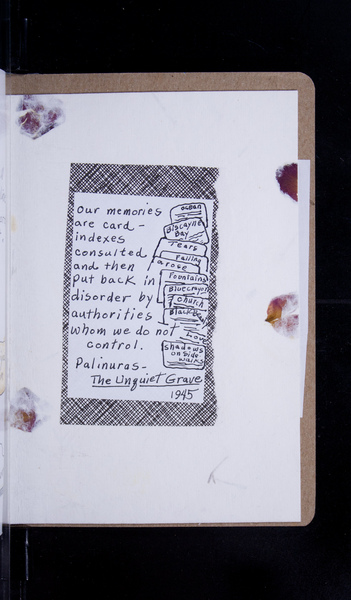 our memories
are card-
indexes
consulted
and then
put back in
disorder by
authorities
whom we do not
control.
Palinuras-
The Unquiet Grave
1945
ocean
Biscayne
Bay
Tears
Falling
a rose
Fountains
Bluecrayon
church
Black
Love
shadows
on side
walks